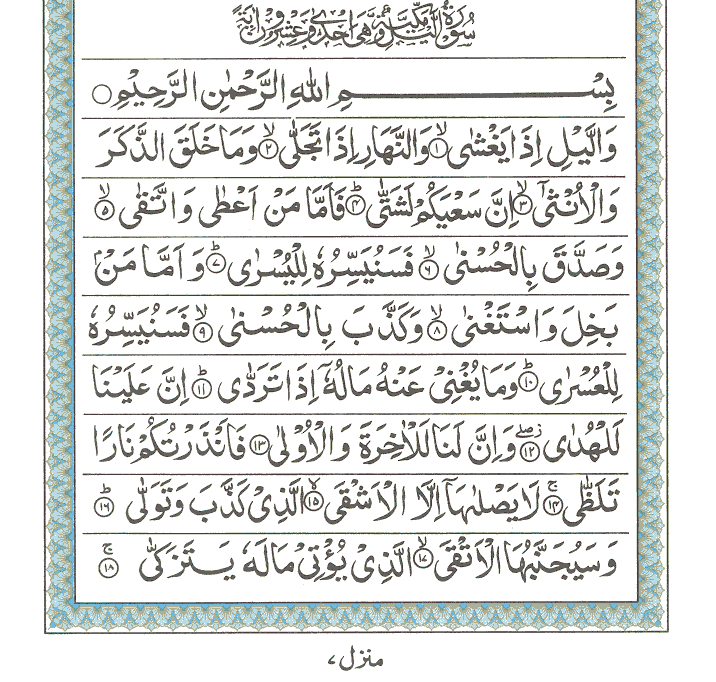 سُوْرَةُ الَّيْلِ مَكِّيَّةٌ وَّهِيَ اِحْدٰى وَعِشْرُوْنَ اٰيَةً
بِسْمِ اللهِ الرَّحْمٰنِ الرَّحِيْمِ ○
وَالَّيْلِ اِذَا يَغْشٰى ۙ﴿۱﴾ وَالنَّهَارِ اِذَا تَجَلّٰى ۙ﴿۲﴾ وَمَا خَلَقَ الذَّكَرَ
وَالْاُنْثٰىٓ ۙ﴿۳﴾ اِنَّ سَعْيَكُمْ لَشَتّٰى ؕ﴿۴﴾ فَاَمَّا مَنْ اَعْطٰى وَاتَّقٰى ۙ﴿۵﴾
وَصَدَّقَ بِالْحُسْنٰى ۙ﴿۶﴾ فَسَنُيَسِّرُهٗ لِلْيُسْرٰى ؕ﴿۷﴾ وَاَمَّا مَنْۢ
بَخِلَ وَاسْتَغْنٰى ۙ﴿۸﴾ وَكَذَّبَ بِالْحُسْنٰى ۙ﴿۹﴾ فَسَنُيَسِّرُهٗ
لِلْعُسْرٰى ؕ﴿۱۰﴾ وَمَا يُغْنِيْ عَنْهُ مَالُهٗٓ اِذَا تَرَدّٰى ؕ﴿۱۱﴾ اِنَّ عَلَيْنَا
لَلْهُدٰى ۖ﴿۱۲﴾ وَاِنَّ لَنَا لَلْاٰخِرَةَ وَالْاُوْلٰى ﴿۱۳﴾ فَاَنْذَرْتُكُمْ نَارًا
تَلَظّٰى ۚ﴿۱۴﴾ لَا يَصْلٰىهَآ اِلَّا الْاَشْقَى ۙ﴿۱۵﴾ الَّذِيْ كَذَّبَ وَتَوَلّٰى ؕ﴿۱۶﴾
وَسَيُجَنَّبُهَا الْاَتْقَى ۙ﴿۱۷﴾ الَّذِيْ يُؤْتِيْ مَالَهٗ يَتَزَكّٰى ۚ﴿۱۸﴾
منزل ۷